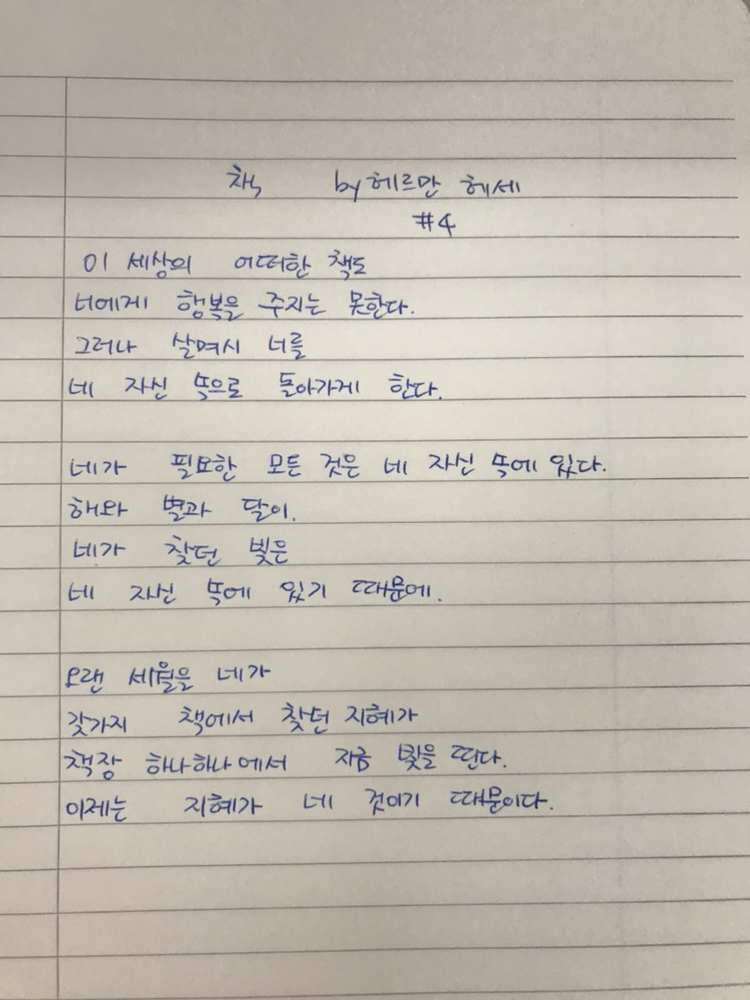 책 by 헤르만 헤세
#4
이 세상의 어떠한 책도
너에게 행복을 주지는 못한다.
그러나 살며시 너를
네 자신 속으로 돌아가게 한다.
네가 필요한 모든 것은 네 자신 속에 있다.
해와 별과 달이.
네가 찾던 빛은
네 자신 속에 있기 때문에.
오랜 세월을 네가
갖가지 책에서 찾던 지혜가
책장 하나하나에서 지금 빛을 띤다.
이제는 지혜가 네 것이기 때문이다.